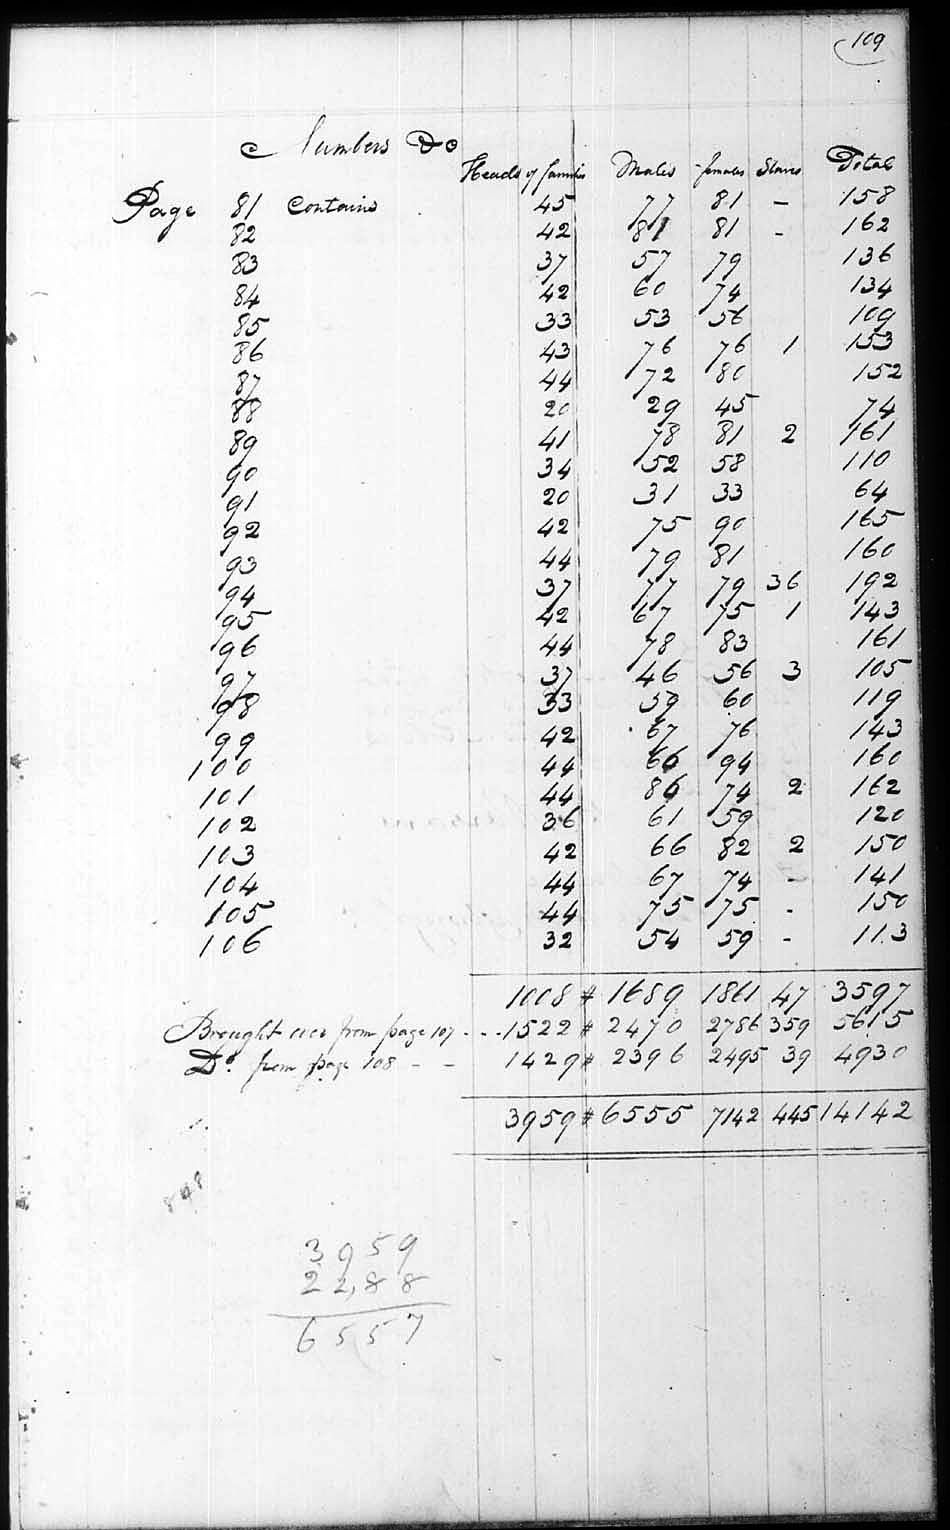 109
Numbers &c
Heads of families Males females Slaves Total
Page 81 Contains 45 77 81 - 158
82 42 81 81 - 162
83 37 57 79 136
84 42 60 74 134
85 33 53 56 109
86 43 76 76 1 153
87 44 72 80 152
88 20 29 45 74
89 41 78 81 2 161
90 34 52 58 110
91 20 31 33 64
92 42 75 90 165
93 44 79 81 160
94 37 77 79 36 192
95 42 67 75 1 143
96 44 78 83 161
97 37 46 56 3 105
98 33 59 60 119
99 42 67 76 143
100 44 66 94 160
101 44 86 74 2 162
102 36 61 59 120
103 42 66 82 2 150
104 44 67 74 - 141
105 44 75 75 - 150
106 32 54 59 - 113
1008 # 1689 1861 47 3597
Brought over from page 107 - - - 1522 # 2470 2786 359 5615
Do. from page 108 - - 1429 # 2396 2495 39 4930
3959 # 6555 7142 445 14142
848
3959
22,88
6557